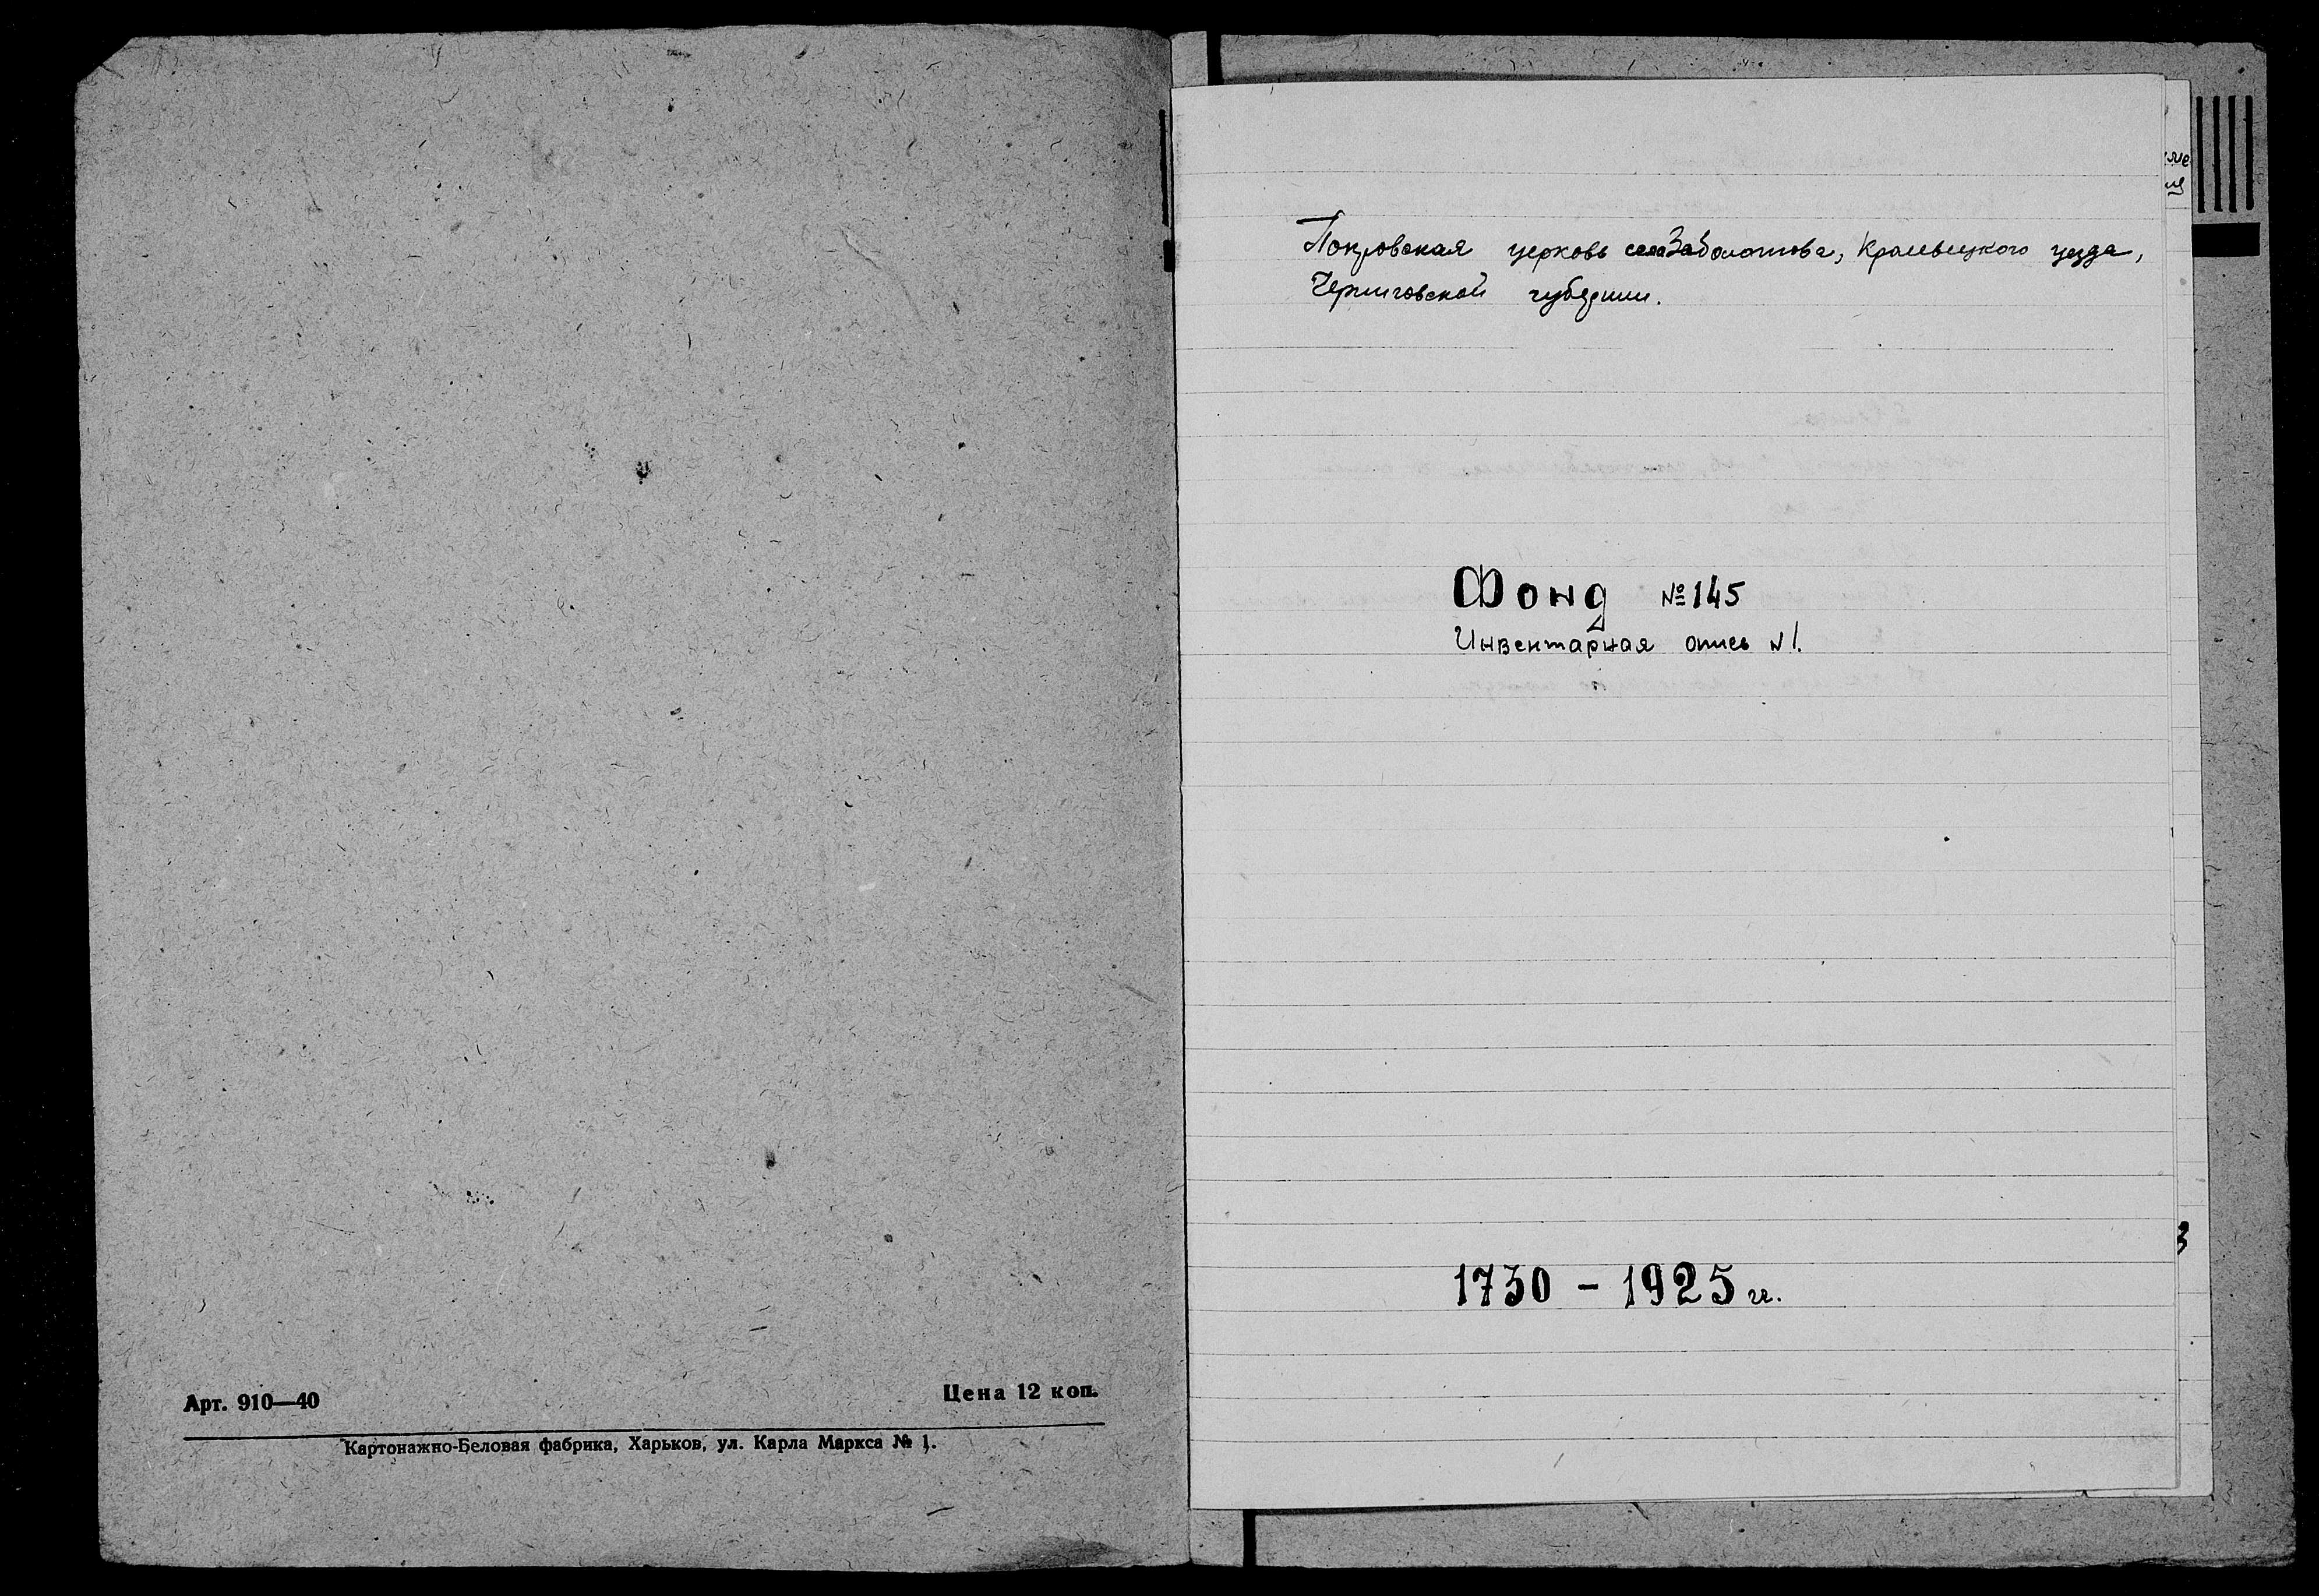 Арт. 910—40
Цена 12 коп.
Картонажно-Беловая фабрика, Харьков, ул. Карла Маркса № 1.
Покровская церковь села Заболотова, Кролевецкого уезда,
Черниговской губернии.
Фонд №145
Инвентарная опись №1.
1730 – 1925 гг.